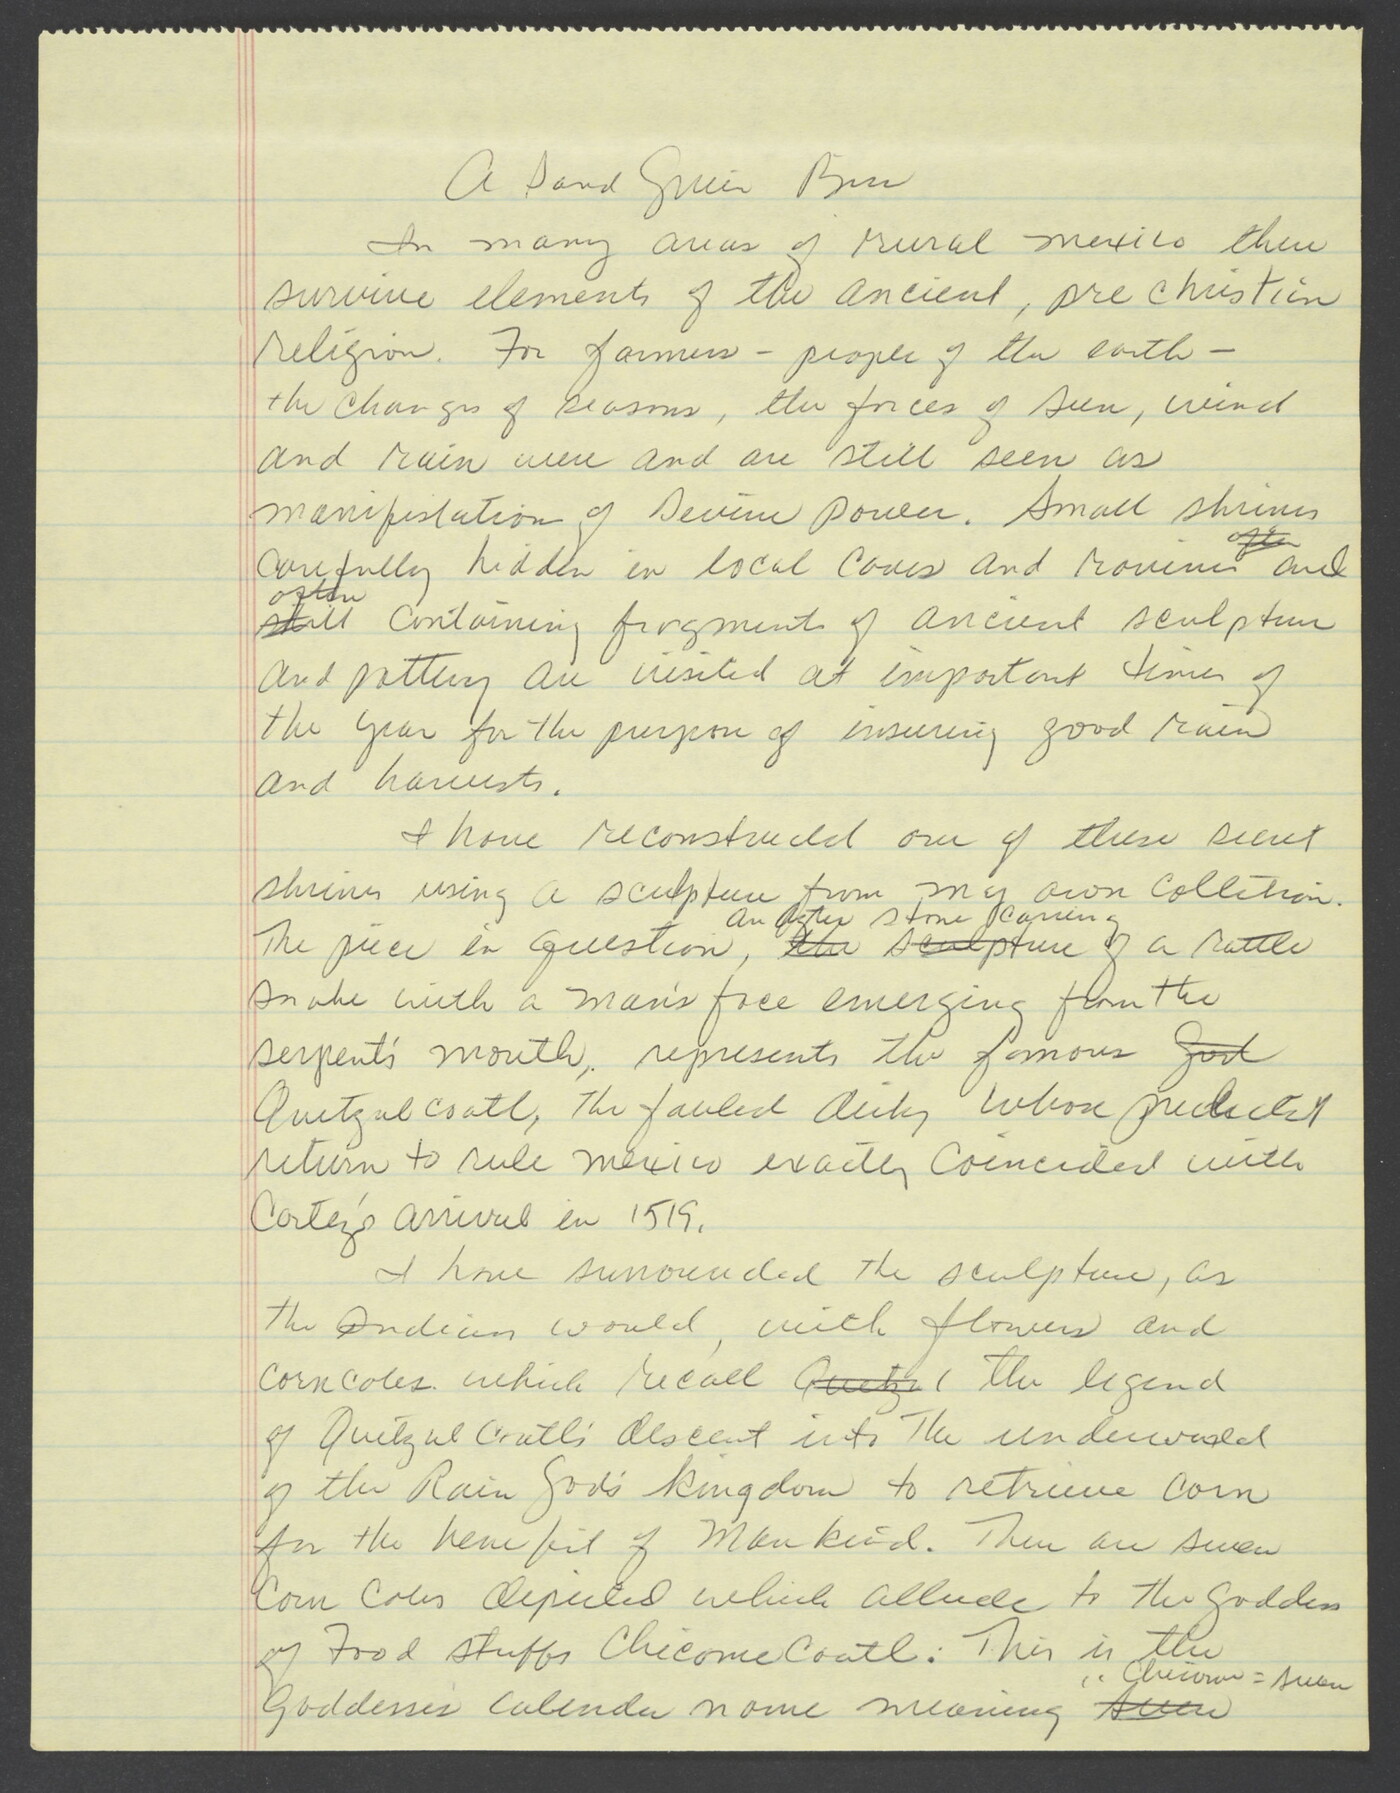 A David Green Box
In many areas of rural Mexico there
survive elements of the ancient, pre christian
religion. For farmers - people of the earth -
the changes of seasons, the forces of sun, wind
and rain were and are still seen as
manifestation of Devine power. Small shrines
carefully hidden in local caves and ravines often and
often
still containing fragments of ancient sculpture
and pottery are visited at important times of
the year for the purpose of insuring good rain
and harvests.
I have reconstructed one of these secret
shrines using a sculpture from my own collection.
an Aztec stone carving
The piece in question, the sculpture of a rattle
snake with a man's face emerging from the
serpent's mouth, represents the famous God
Quetzalcoatl, the fabled deity whose predicted
return to rule Mexico exactly coincided with
Cortez's arrival in 1519.
I have surrounded the sculpture, as
the Indians would, with flowers and
corncobs which recall Quetzal the legend
of Quetzalcoatl's descent into the underworld
of the Rain God's kingdom to retrieve corn
for the benefit of Mankind. There are seven
corn cobs depicted which allude to the goddess
of Food stuffs ChicomeCoatl: This is the
" Chicome = seven
Goddesses calender name meaning seven